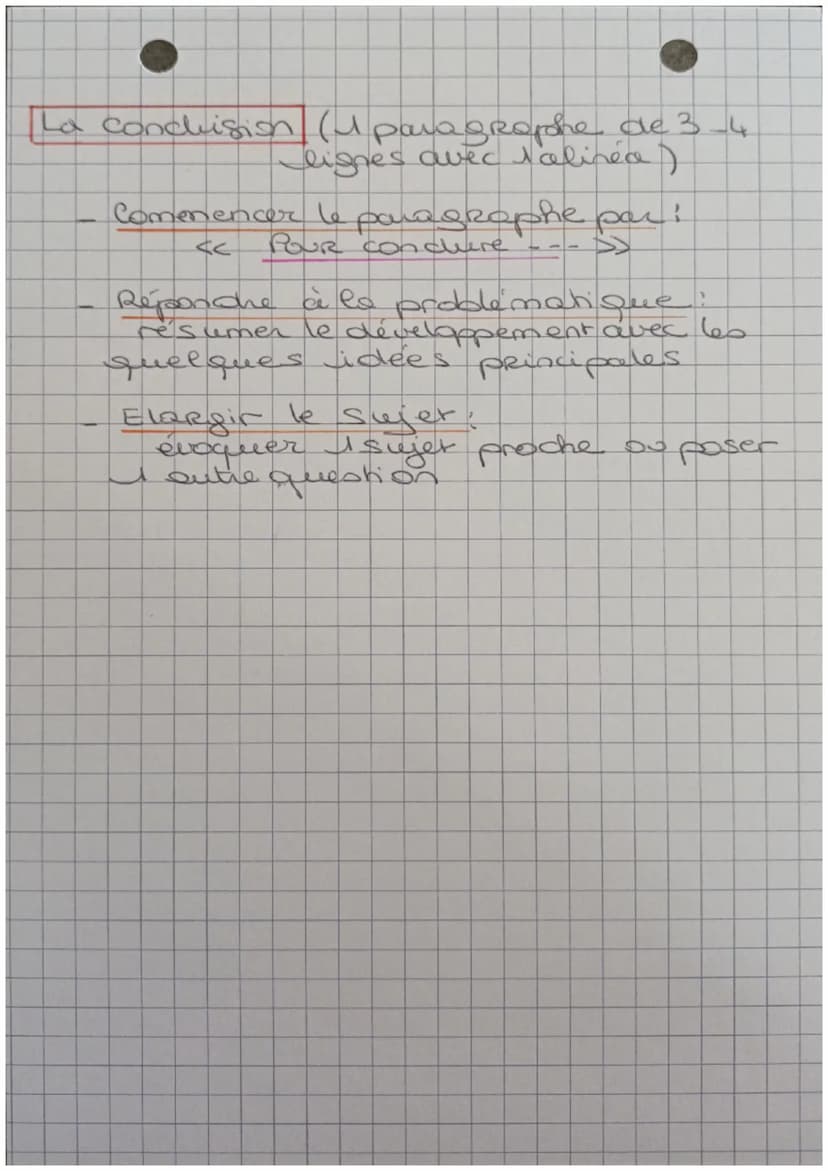 La conclusion (1 paragraphe de 3-4
lignes avec 1 alinéa)
- Comencer le paragraphe par :
<< Pour conclure --- >>
- Répondre à la problématique :
résumer le développement avec les
quelques idées principales
- Elargir le sujet :
évoquer 1 sujet proche ou poser
1 autre question